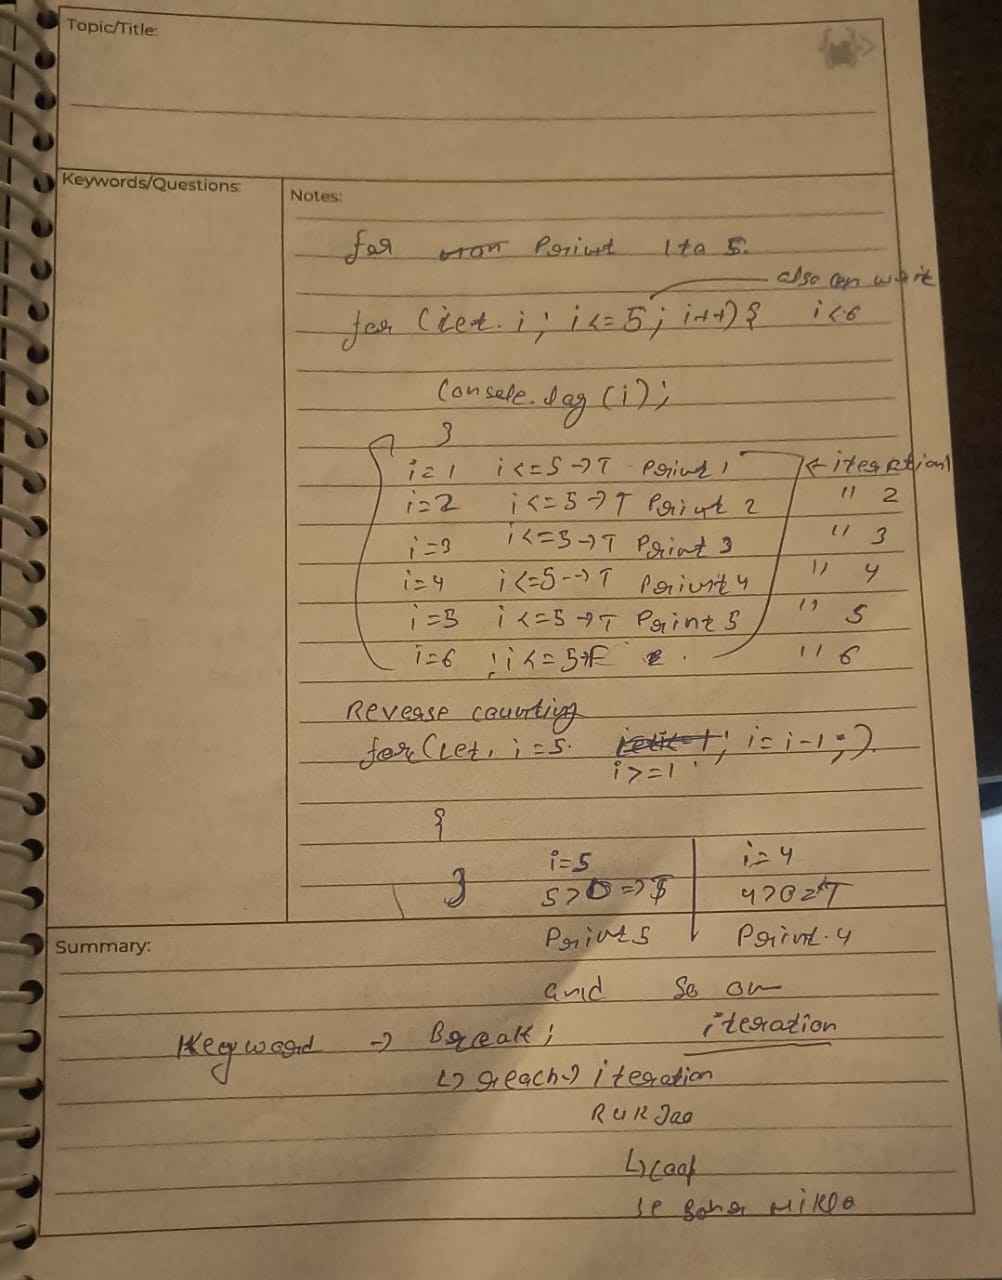 Topic/Title:
Keywords/Questions:
Notes:
for Print 1 to 5.
also can write
for (let. i; i<=5; i++) { i<6
Console.log (i);
}
i=1 i<=5 → T Print 1 ← iteration 1
i=2 i<=5 → T Print 2 " 2
i=3 i<=5 → T Print 3 " 3
i=4 i<=5 → T Print 4 " 4
i=5 i<=5 → T Print 5 " 5
i=6 i<=5 → F " 6
Reverse counting
for (let. i=5. ; i=i-1;)
i>=1
{
i=5 i=4
} 5>0 => T 4>0 => T
Print 5 Print.4
Summary:
and so on
Keyword → Break; iteration
↳ reach → iteration
RUK Jao
↳ Loop
se Bahar Niklo